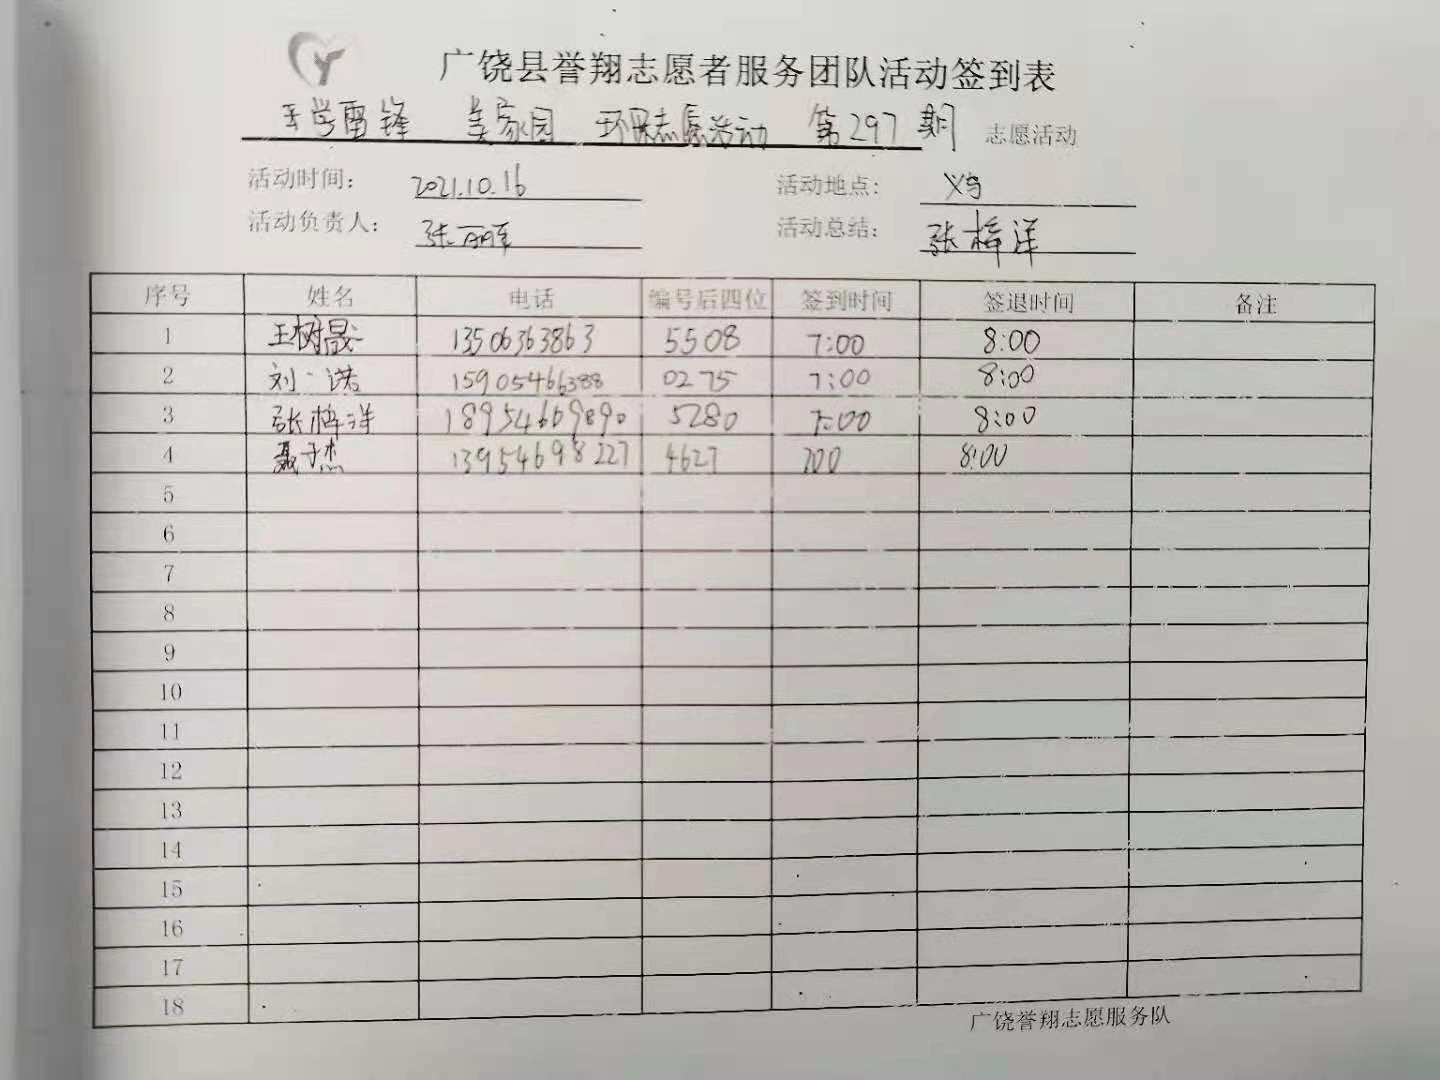 广饶县誉翔志愿者服务团队活动签到表
学雷锋 美家园 环保志愿活动 第297期 志愿活动
活动时间： 2021.10.16 活动地点：
活动负责人： 张丽萍 活动总结： 张梓洋
序号 姓名 电话 编号后四位 签到时间 签退时间 备注
1 王树晟 13506363863 5508 7:00 8:00
2 刘一诺 15905466388 0275 7:00 8:00
3 张梓洋 18954609890 5280 7:00 8:00
4 聂子杰 13954698227 4627 700 8:00
5
6
7
8
9
10
11
12
13
14
15
16
17
18
广饶誉翔志愿服务队